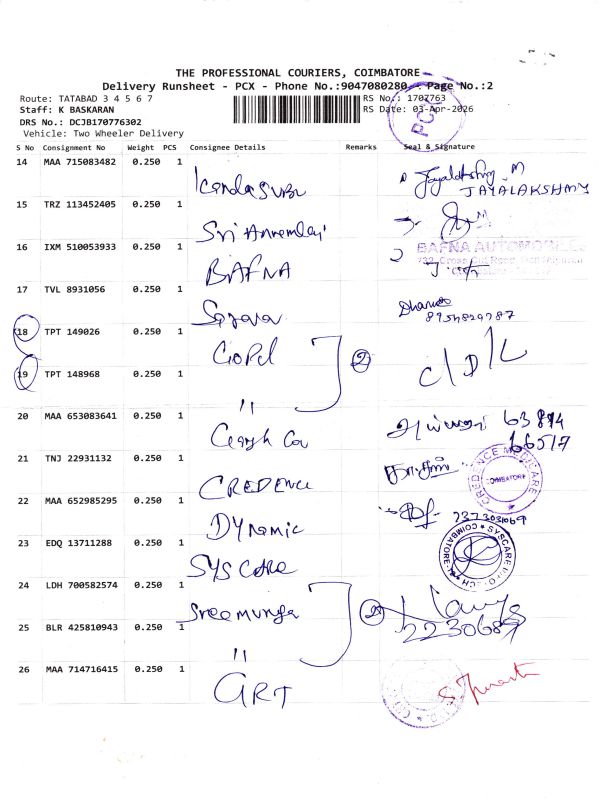 THE PROFESSIONAL COURIERS, COIMBATORE
Delivery Runsheet - PCX - Phone No.:9047080280 - Page No.:2
Route: TATABAD 3 4 5 6 7
RS No.: 1707763
Staff: K BASKARAN
RS Date: 03-Apr-2026
DRS No.: DCJB170776302
Vehicle: Two Wheeler Delivery
PCX
S No Consignment No Weight PCS Consignee Details Remarks Seal & Signature
14 MAA 715083482 0.250 1 Jayalakshmy. M
JAYALAKSHMY
15 TRZ 113452405 0.250 1 Sri Annamalai
16 IXM 510053933 0.250 1 BAFNA
BAFNA AUTOMOBILES
17 TVL 8931056 0.250 1
18 TPT 149026 0.250 1 GOPal 2 C/D/L
19 TPT 148968 0.250 1 "
20 MAA 653083641 0.250 1 63874
66517
21 TNJ 22931132 0.250 1 CREDENCE
CREDENCE MEDICARE COIMBATORE
22 MAA 652985295 0.250 1 DYnamic
23 EDQ 13711288 0.250 1 SYS CARE
SYSCARE COIMBATORE
24 LDH 700582574 0.250 1 Sreemuruga 2
25 BLR 425810943 0.250 1 "
26 MAA 714716415 0.250 1 GRT